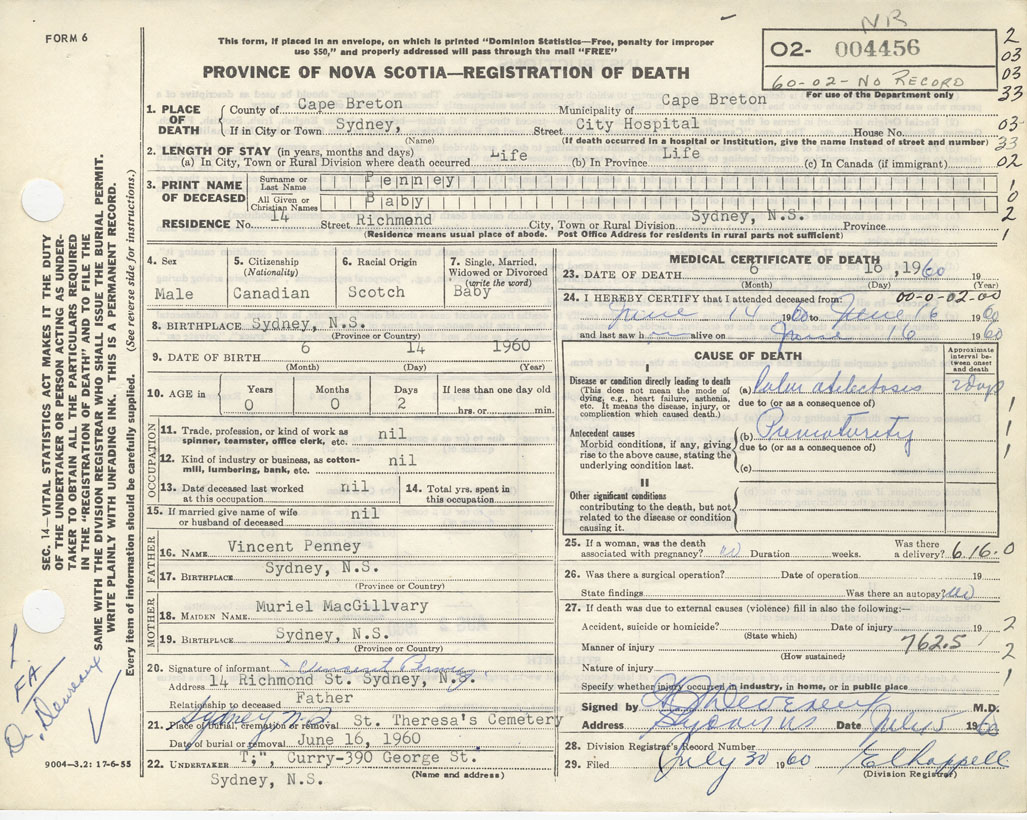 FORM 6
This form, if placed in an envelope, on which is printed "Dominion Statistics—Free, penalty for improper
use $50," and properly addressed will pass through the mail "FREE"
NR
02- 004456
60-02-No RECORD
For use of the Department only
PROVINCE OF NOVA SCOTIA—REGISTRATION OF DEATH
2
03
03
33
03
33
02
1
0
2
1
1. PLACE OF DEATH
County of Cape Breton Municipality of Cape Breton
If in City or Town Sydney, Street City Hospital House No.
(Name) (If death occurred in a hospital or Institution, give the name instead of street and number)
2. LENGTH OF STAY (in years, months and days)
(a) In City, Town or Rural Division where death occurred Life (b) In Province Life (c) In Canada (if immigrant)
3. PRINT NAME OF DECEASED
Surname or Last Name Penney
All Given or Christian Names Baby
RESIDENCE No. 14 Street Richmond City, Town or Rural Division Sydney, N.S. Province
(Residence means usual place of abode. Post Office Address for residents in rural parts not sufficient)
4. Sex
Male
5. Citizenship
(Nationality)
Canadian
6. Racial Origin
Scotch
7. Single, Married,
Widowed or Divorced
(write the word)
Baby
8. BIRTHPLACE Sydney, N.S.
(Province or Country)
9. DATE OF BIRTH 6 14 1960
(Month) (Day) (Year)
10. AGE in
Years Months Days If less than one day old
0 0 2 hrs. or min.
OCCUPATION
11. Trade, profession, or kind of work as
spinner, teamster, office clerk, etc. nil
12. Kind of industry or business, as cotton-
mill, lumbering, bank, etc. nil
13. Date deceased last worked
at this occupation nil
14. Total yrs. spent in
this occupation
15. If married give name of wife
or husband of deceased nil
FATHER
16. NAME Vincent Penney
17. BIRTHPLACE Sydney, N.S.
(Province or Country)
MOTHER
18. MAIDEN NAME Muriel MacGillvary
19. BIRTHPLACE Sydney, N.S.
(Province or Country)
20. Signature of informant Vincent Penney
Address 14 Richmond St. Sydney, N.S.
Relationship to deceased Father
Sydney N.S.
21. Place of burial, cremation or removal St. Theresa's Cemetery
Date of burial or removal June 16, 1960
22. UNDERTAKER T;", Curry-390 George St.
(Name and address)
Sydney, N.S.
MEDICAL CERTIFICATE OF DEATH
23. DATE OF DEATH 6 16 ,1960 19
(Month) (Day) (Year)
00-0-02-00
24. I HEREBY CERTIFY that I attended deceased from:
June 14 1960 to June 16 1960
and last saw h alive on June 16 1960
CAUSE OF DEATH
Approximate
interval be-
tween onset
and death
I
Disease or condition directly leading to death
(This does not mean the mode of
dying, e.g., heart failure, asthenia,
etc. It means the disease, injury, or
complication which caused death.)
(a) 2 days
due to (or as a consequence of)
Antecedent causes
Morbid conditions, if any, giving
rise to the above cause, stating the
underlying condition last.
(b) Prematurity
due to (or as a consequence of)
(c)
II
Other significant conditions
contributing to the death, but not
related to the disease or condition
causing it.
1
1
1
25. If a woman, was the death
associated with pregnancy? no Duration weeks.
Was there
a delivery? 6.16.0
26. Was there a surgical operation? Date of operation 19
State findings Was there an autopsy? no
27. If death was due to external causes (violence) fill in also the following:—
Accident, suicide or homicide? Date of injury 19
(State which)
Manner of injury 762.5
(How sustained)
Nature of injury
Specify whether injury occurred in industry, in home, or in public place
2
2
1
Signed by M.D.
Address Sydney NS Date July 5 1960
28. Division Registrar's Record Number
29. Filed July 30 1960
(Division Registrar)
SEC. 14—VITAL STATISTICS ACT MAKES IT THE DUTY
OF THE UNDERTAKER OR PERSON ACTING AS UNDER-
TAKER TO OBTAIN ALL THE PARTICULARS REQUIRED
IN THE "REGISTRATION OF DEATH" AND TO FILE THE
SAME WITH THE DIVISION REGISTRAR WHO SHALL ISSUE THE BURIAL PERMIT.
WRITE PLAINLY WITH UNFADING INK. THIS IS A PERMANENT RECORD.
Every item of information should be carefully supplied. (See reverse side for instructions.)
FA
9004—3.2: 17-6-55